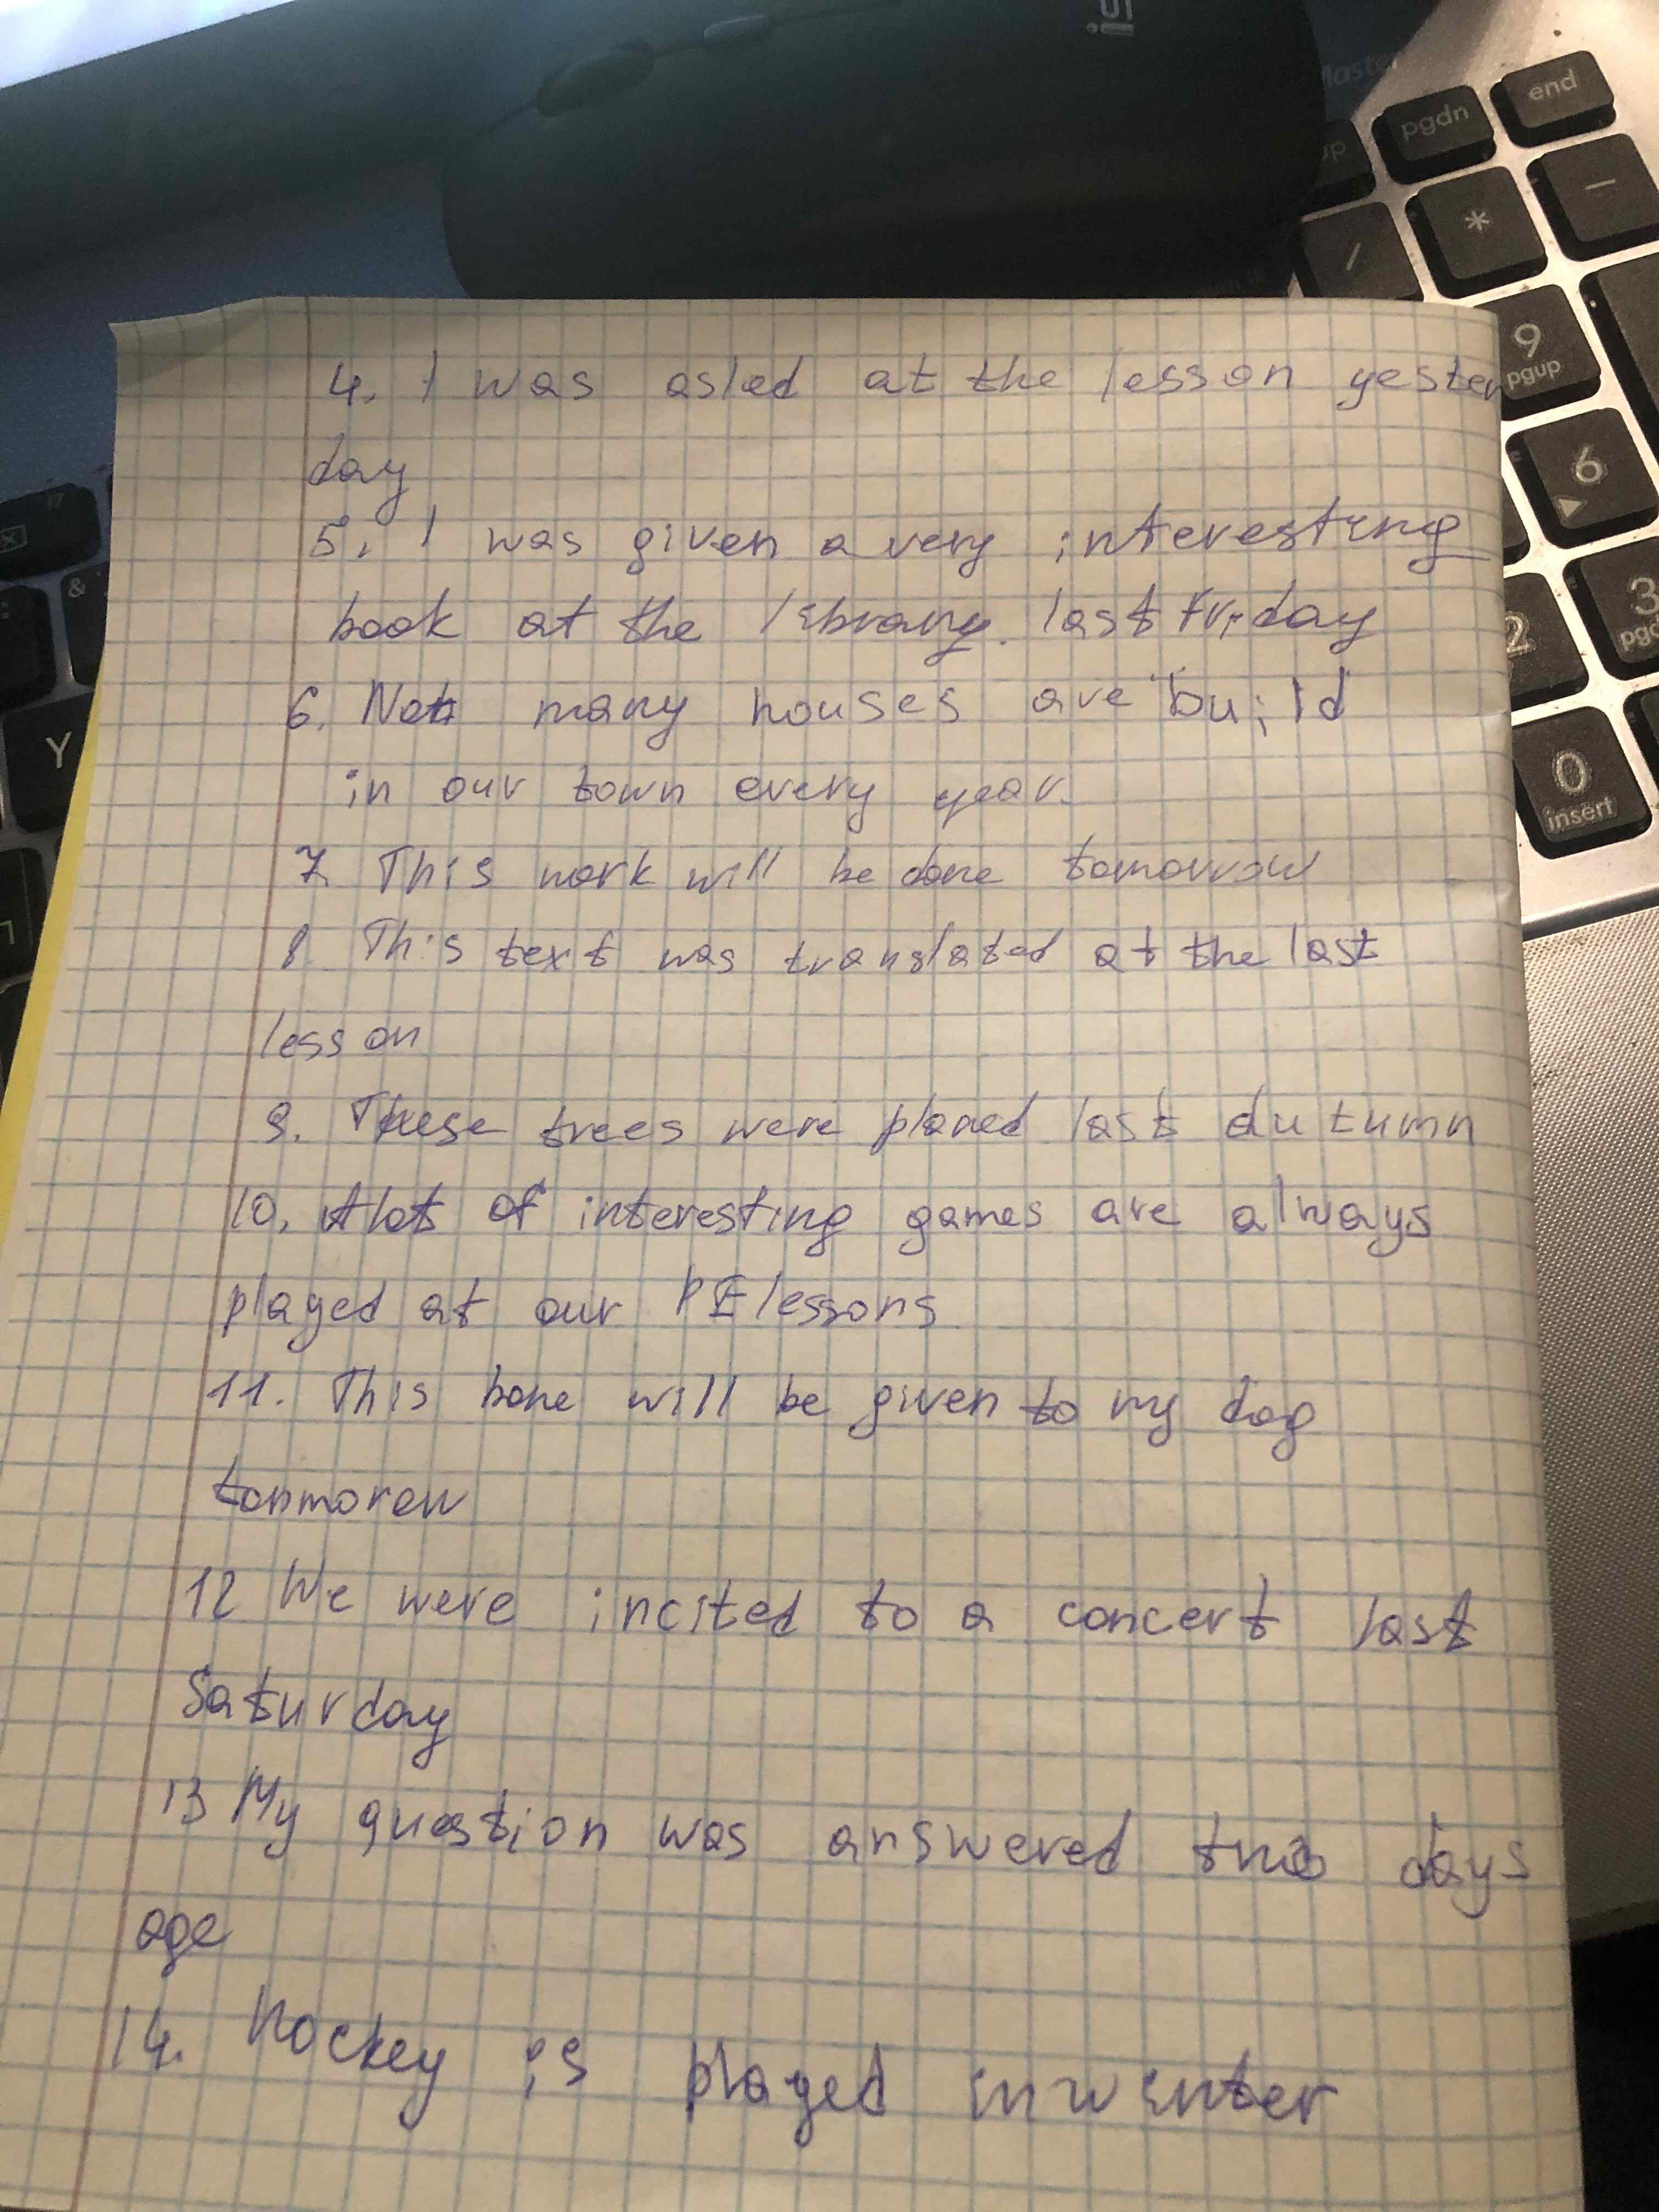 is
Master
end
pgdn
up
—
*
/
9
pgup
6
3
pgd
2
0
insert
&
Y
4. I was asled at the lesson yester
day
5. I was given a very interesting
book at the library. last Friday
6. Not many houses are build
in our town every year.
7. This work will be done tomorrow
8. This text was translated at the last
lesson
9. These trees were planed last autumn
10. A lot of interesting games are always
played at our PE lessons
11. This bone will be given to my dog
tonmorow
12 We were incited to a concert last
Saturday
13 My question was answered two days
age
14. Hockey is played in winter